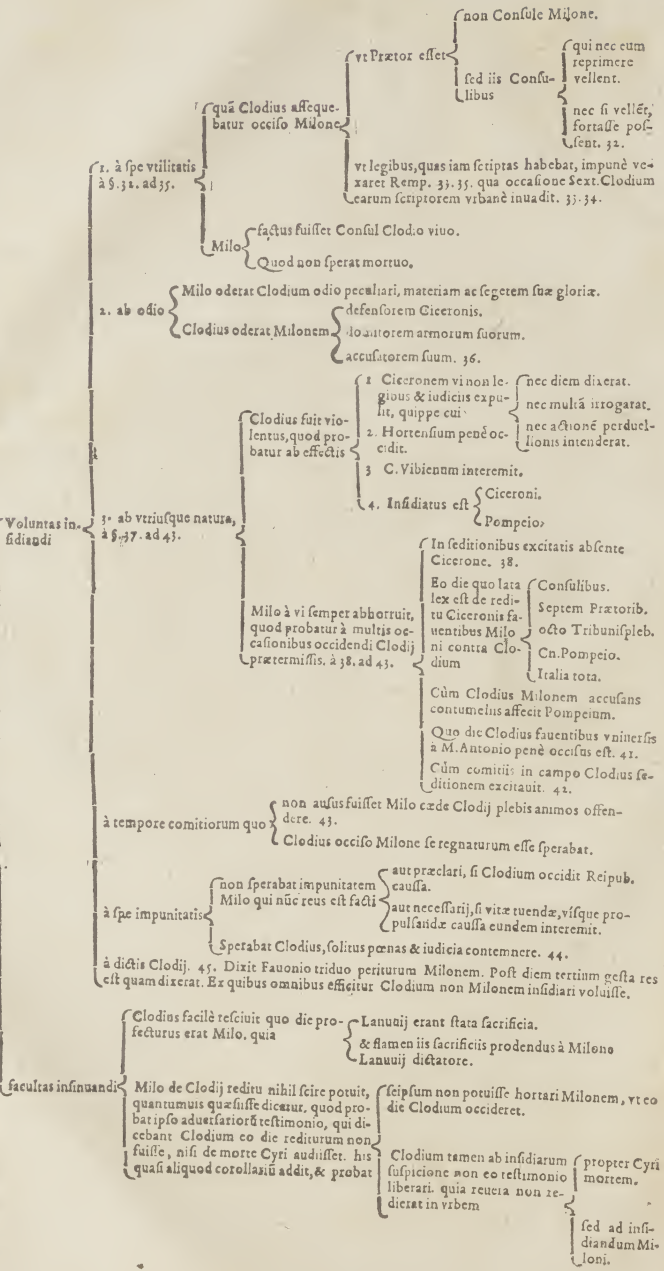 non Conſule Milone.
vt Prætor eſſet
ſed iis Conſu-
libus
qui nec eum
reprimere
vellent.
nec ſi vellẽt,
fortaſſe poſ-
ſent. 32.
quã Clodius aſſeque-
batur occiſo Milone
vt legibus, quas iam ſcriptas habebat, impunè ve-
xaret Remp. 33. 35. qua occaſione Sext. Clodium
earum ſcriptorem vrbanè inuadit. 33. 34.
1. à ſpe vtilitatis
à §. 32. ad 35.
Milo
factus fuiſſet Conſul Clodio viuo.
Quod non ſperat mortuo.
2. ab odio
Milo oderat Clodium odio peculiari, materiam ac ſegetem ſuæ gloriæ.
Clodius oderat Milonem
defenſorem Ciceronis.
domitorem armorum ſuorum.
accuſatorem ſuum. 36.
Voluntas in-
ſidiandi
3. ab vtriuſque natura,
à §. 37. ad 43.
Clodius fuit vio-
lentus, quod pro-
batur ab effectis
1 Ciceronem vi non le-
gibus & iudiciis expu-
lit, quippe cui
nec diem dixerat.
nec multã irrogarat.
nec actionẽ perduel-
lionis intenderat.
2. Hortenſium penè oc-
cidit.
3 C. Vibienum interemit.
4. Inſidiatus eſt
Ciceroni.
Pompeio,
Milo à vi ſemper abhorruit,
quod probatur à multis oc-
caſionibus occidendi Clodij
prætermiſſis. à 38. ad 43.
In ſeditionibus excitatis abſente
Cicerone. 38.
Eo die quo lata
lex eſt de redi-
tu Ciceronis fa-
uentibus Milo
ni contra Clo-
dium
Conſulibus.
Septem Prætorib.
octo Tribuniſpleb.
Cn. Pompeio.
Italia tota.
Cùm Clodius Milonem accuſans
contumeliis affecit Pompeium.
Quo die Clodius fauentibus vniuerſis
à M. Antonio penè occiſus eſt. 41.
Cùm comitiis in campo Clodius ſe-
ditionem excitauit. 42.
à tempore comitiorum quo
non auſus fuiſſet Milo cæde Clodij plebis animos offen-
dere. 43.
Clodius occiſo Milone ſe regnaturum eſſe ſperabat.
à ſpe impunitatis
non ſperabat impunitatem
Milo qui nũc reus eſt facti
aut præclari, ſi Clodium occidit Reipub.
cauſſa.
aut neceſſarij, ſi vitæ tuendæ, víſque pro-
pulſandæ cauſſa eundem interemit.
Sperabat Clodius, ſolitus pœnas & iudicia contemnere. 44.
à dictis Clodij. 45. Dixit Fauonio triduo periturum Milonem. Poſt diem tertium geſta res
eſt quam dixerat. Ex quibus omnibus efficitur Clodium non Milonem inſidiari voluiſſe.
facultas inſinuandi
Clodius facilè reſciuit quo die pro-
fecturus erat Milo, quia
Lanuuij erant ſtata ſacrificia.
& flamen iis ſacrificiis prodendus à Milono
Lanuuij dictatore.
Milo de Clodij reditu nihil ſcire potuit,
quantumuis quæſiiſſe dicatur, quod pro-
bat ipſo aduerſariorũ teſtimonio, qui di-
cebant Clodium eo die rediturum non
fuiſſe, niſi de morte Cyri audiiſſet. his
quaſi aliquod corollariũ addit, & probat
ſeipſum non potuiſſe hortari Milonem, vt eo
die Clodium occideret.
Clodium tamen ab inſidiarum
ſuſpicione non eo teſtimonio
liberari. quia reuera non re-
dierat in vrbem
propter Cyri
mortem.
ſed ad inſi-
diandum Mi-
loni.